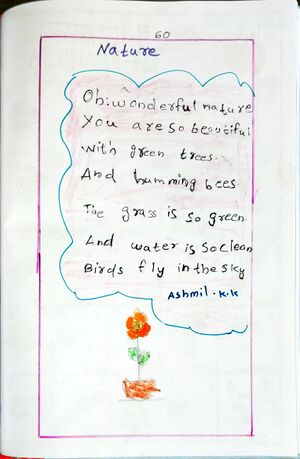 60
Nature
Oh! wonderful nature
You are so beautiful
with green trees.
And humming bees
The grass is so green.
And water is so clean
Birds fly in the sky
Ashmil.K.K